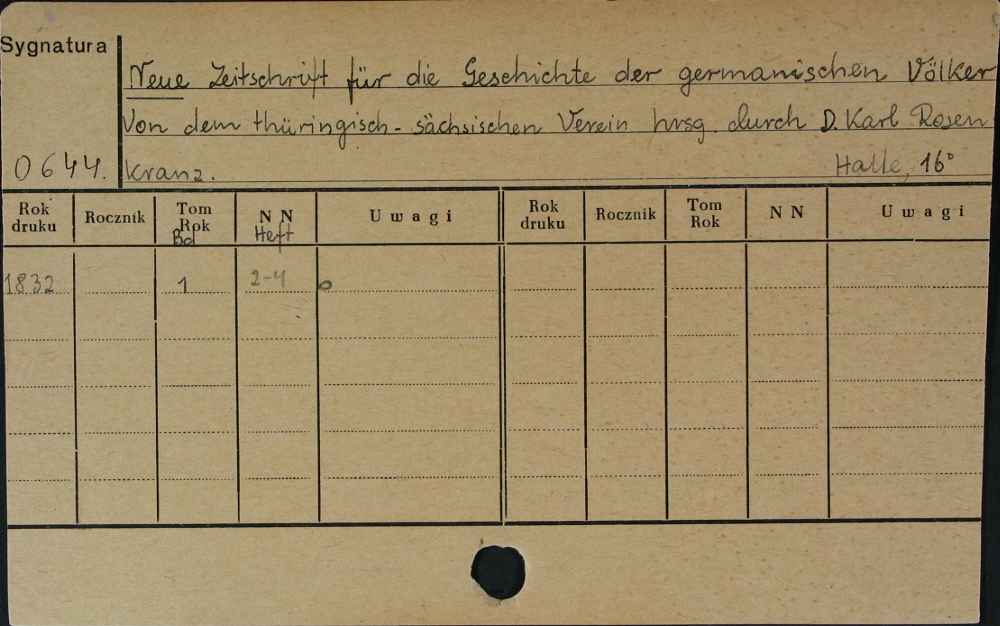 Sygnatura
Neue Zeitschrift für die Geschichte der germanischen Völker
Von dem thüringisch-sächsischen Verein hrsg. durch D. Karl Rosen
0644. kranz. Halle, 16°
Rok druku Rocznik Tom Rok Bd NN Heft Uwagi Rok druku Rocznik Tom Rok NN Uwagi
1832 1 2-4 o